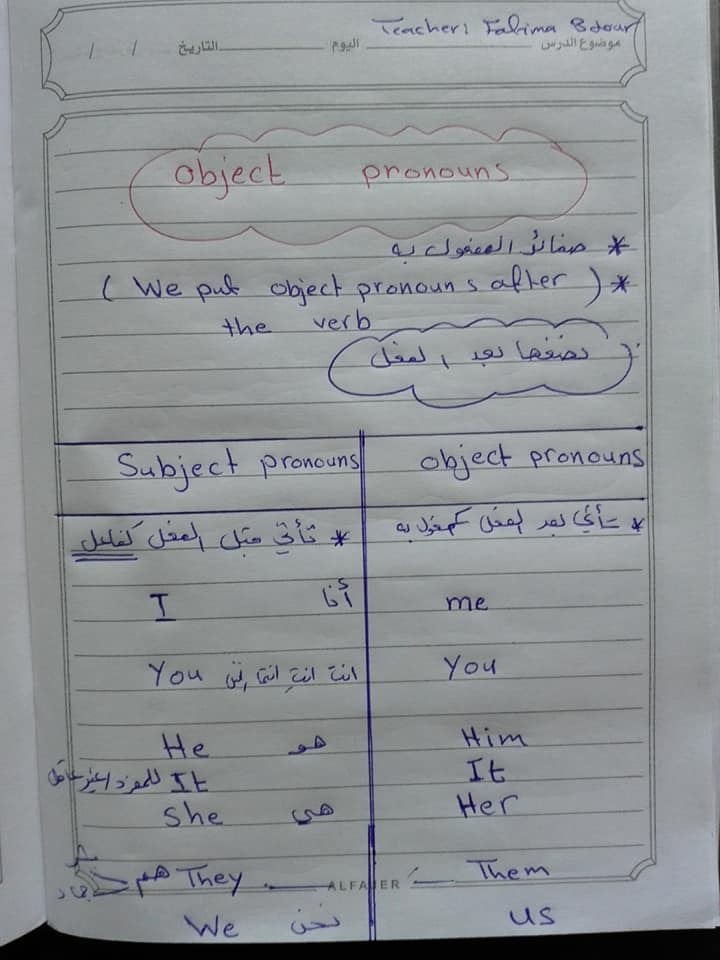 Teacher: Fatima Bdour
موضوع الدرس اليوم التاريخ / /
object pronouns
* ضمائر المفعول به
* ( We put object pronouns after the verb )
نضعها بعد الفعل
Subject pronouns object pronouns
* تأتي قبل الفعل كفاعل * تأتي بعد الفعل كمفعول به
I أنا me
You انتَ انتِ انتما You
He هو Him
It للمفرد الغير عاقل It
She هي Her
They هم Them
ALFAJER
We نحن us